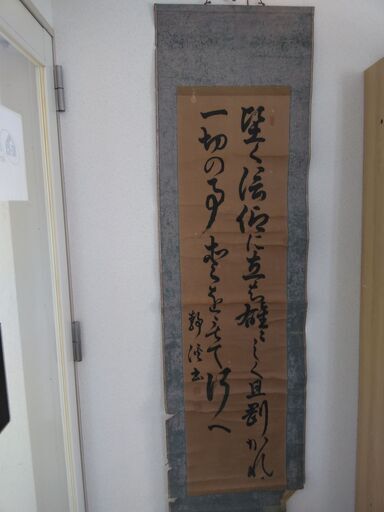 堅く信仰に立ち雄々しく且剛かれ
一切の事愛をもて行へ
静渓書